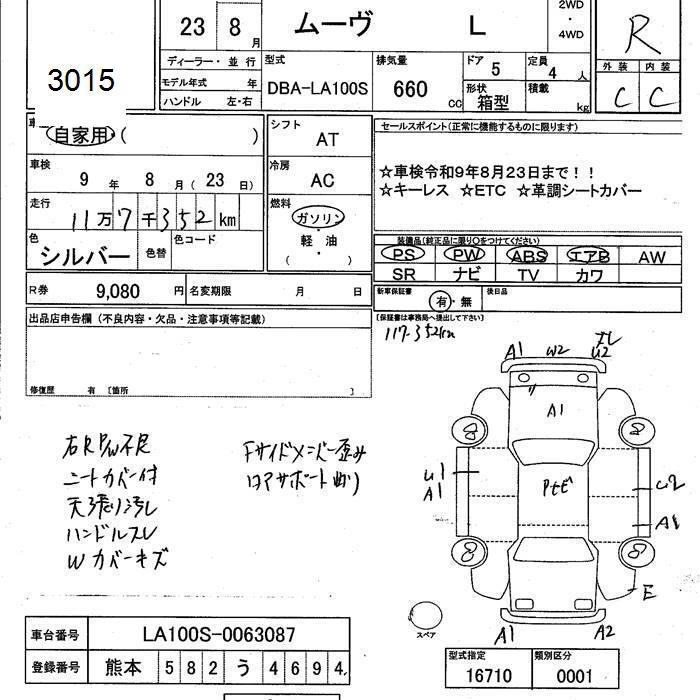 23 8 月 ムーヴ L 2WD ・ 4WD R
3015
ディーラー・並行
モデル年式 年
ハンドル 左・右
型式 DBA-LA100S
排気量 660 CC
ドア 5
定員 4 人
形状 箱型
積載 kg
外装 内装
C C
自家用 ( )
シフト AT
セールスポイント(正常に機能するものに限ります)
車検 9 年 8 月 ( 23 日)
冷房 AC
☆車検令和9年8月23日まで!!
☆キーレス ☆ETC ☆革調シートカバー
走行 11万7千352km
燃料 ガソリン ・ 軽油 ( )
色 シルバー 色替 色コード
装備品(純正品に限り○をつけてください)
PS PW ABS エアB AW
SR ナビ TV カワ
R券 9,080 円 名変期限 月 日
新車保証書 有・無 後日品
(保証書は事務局へ提出して下さい)
出品店申告欄 (不良内容・欠品・注意事項等記載)
117,352km
修復歴 有 [箇所 ]
A1 W2 U2
A1
右RP/W不良
ニートカバー付
天張り汚し
ハンドルスレ
Wカバーキズ
Fサイドメンバー歪み
ロアサポート曲り
U1
A1
U2
A1
E
スペア
A1 A2
車台番号 LA100S-0063087
登録番号 熊本 5 8 2 う 4 6 9 4
型式指定 類別区分
16710 0001